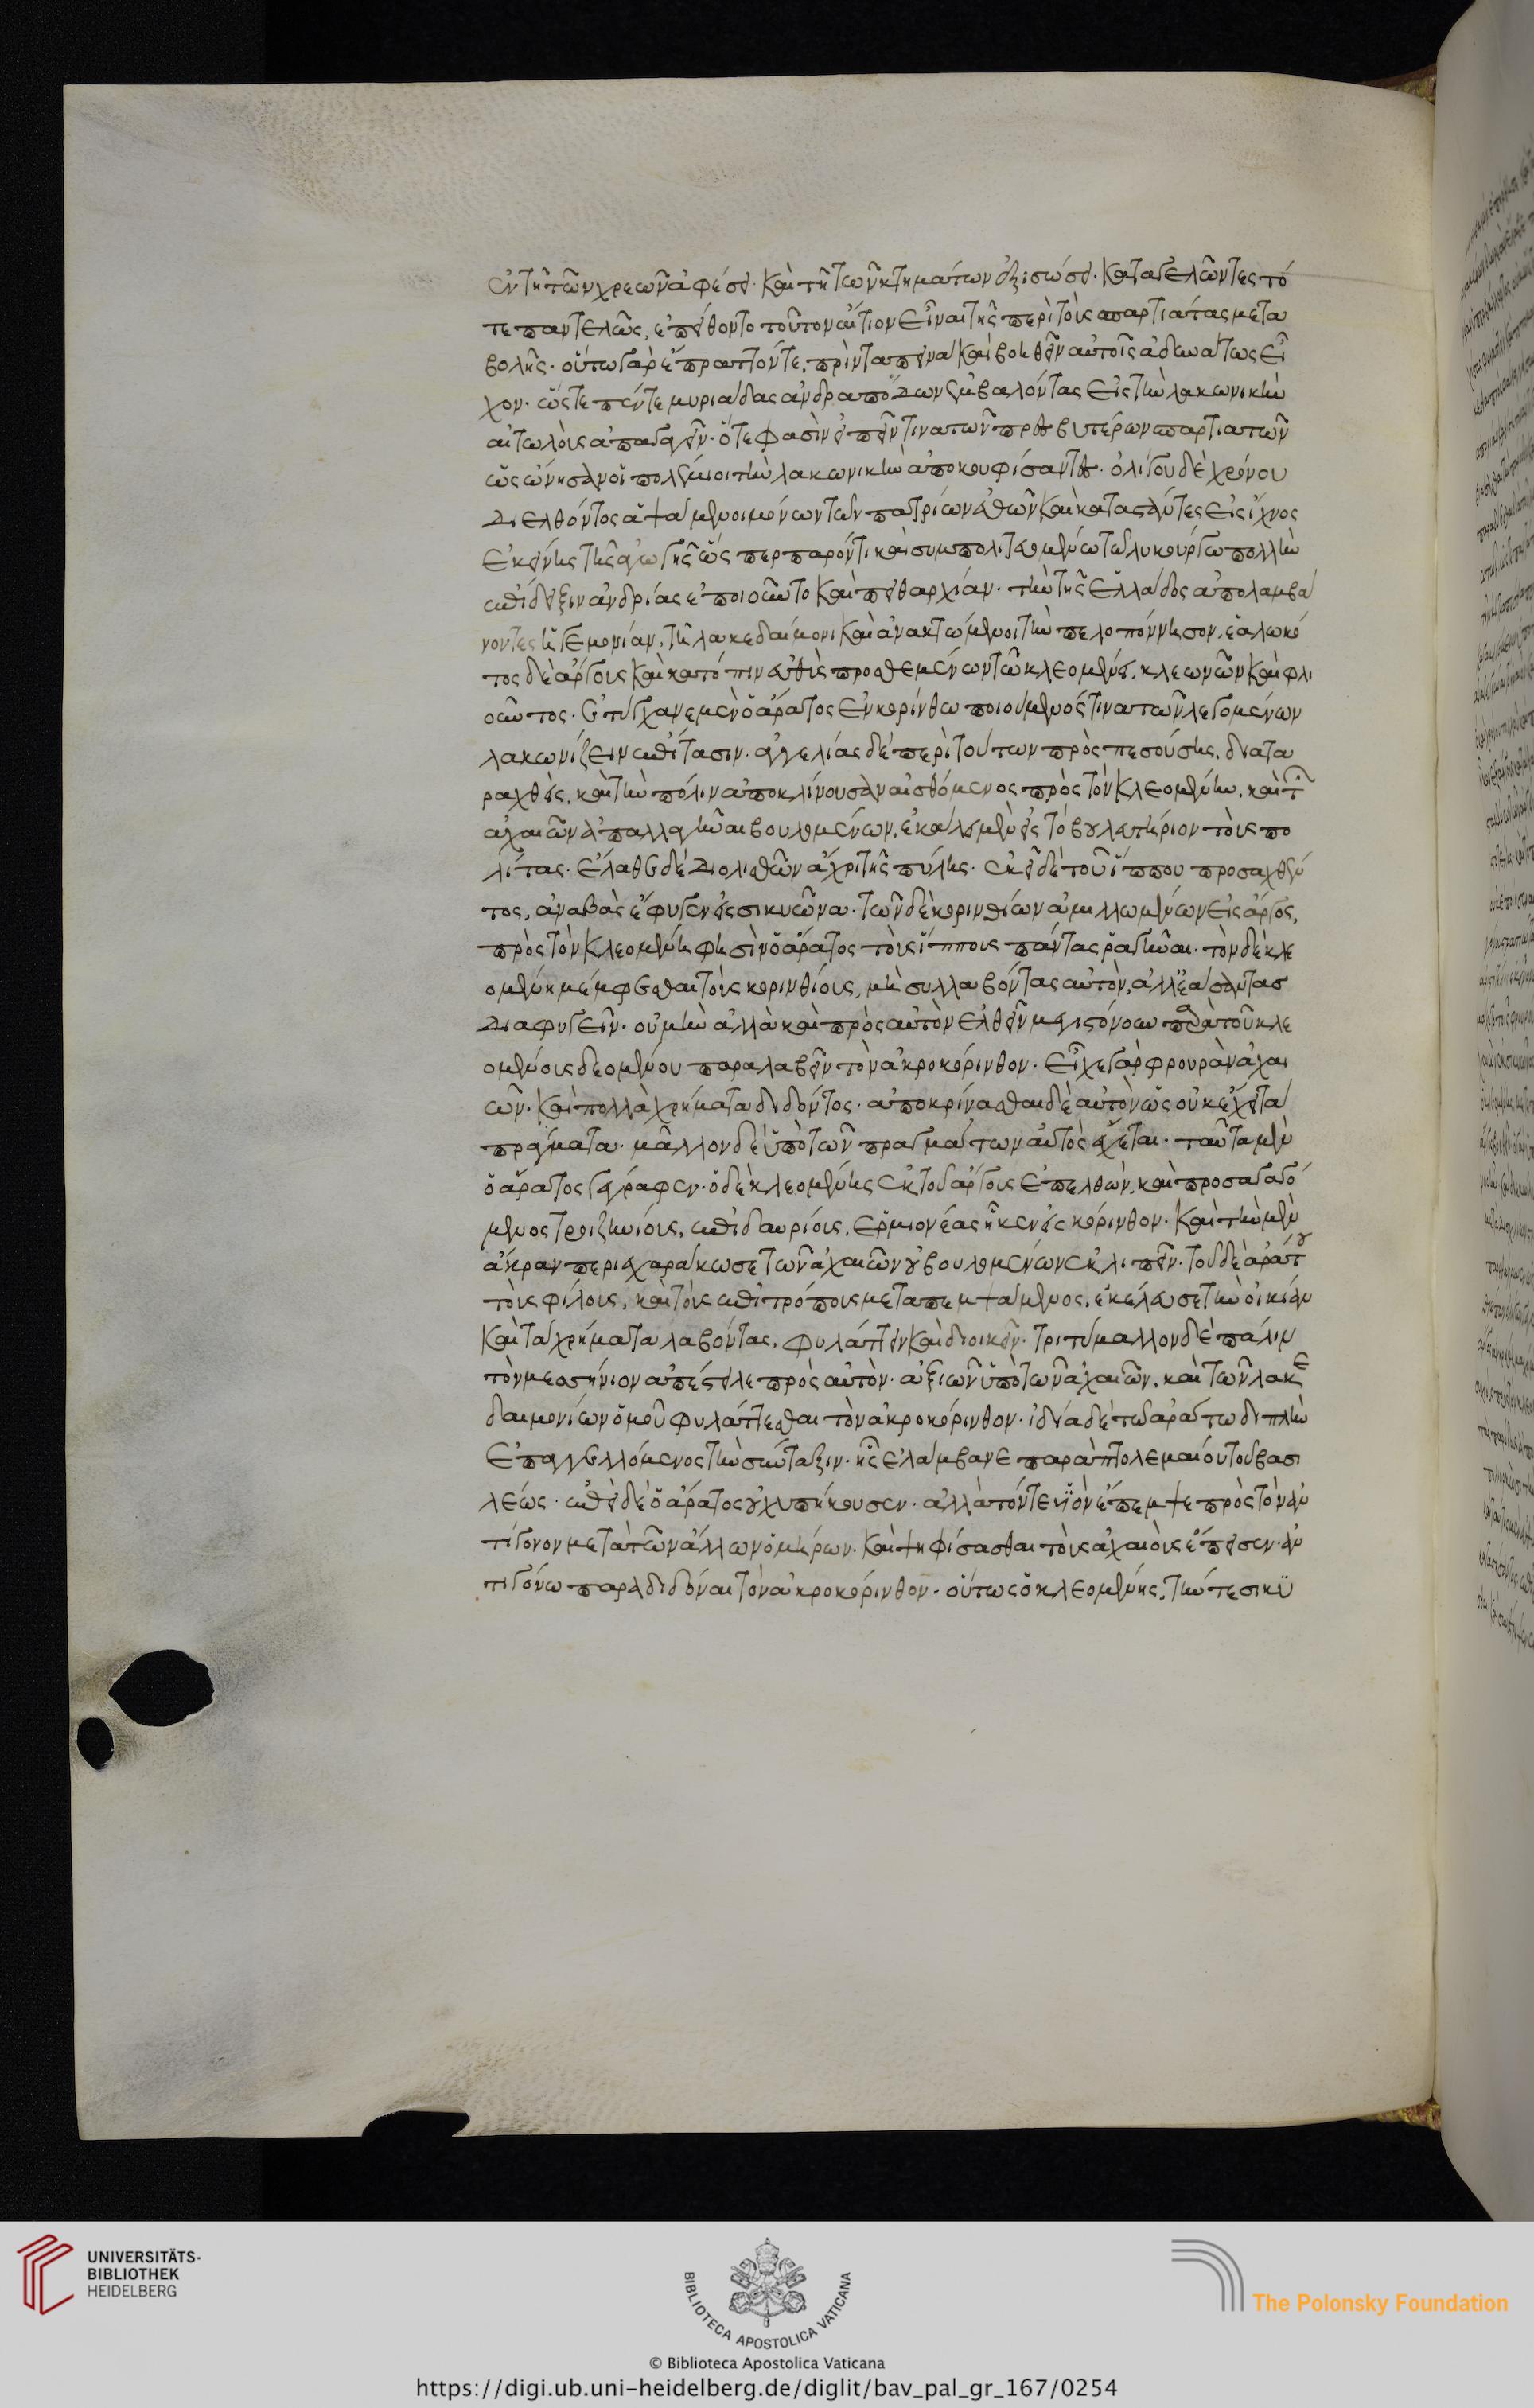 ἐν τῇ τῶν χρεῶν ἀφέσει· καὶ τῇ τῶν κτημάτων ἐξισώσει· καταγελῶντες τό
τε παντελῶς, ἐπείθοντο τοῦτον αἴτιον εἶναι τῆς περὶ τοὺς σπαρτιάτας μετα
βολῆς· οὕτω γὰρ ἔπραττόν τε, πρὶν ταπεινὰ καὶ βοηθεῖν αὑτοῖς ἀδυνάτως εἶ
χον· ὥστε πέντε μυριάδας ἀνδραπόδων ἐμβαλόντας εἰς τὴν λακωνικὴν
αἰτωλοὺς ἀπαγαγεῖν· ὅτε φασὶν εἰπεῖν τινα τῶν πρεσβυτέρων σπαρτιατῶν
ὡς ὤνησαν οἱ πολέμιοι τὴν λακωνικὴν ἀποκουφίσαντες· ὀλίγου δὲ χρόνου
διελθόντος ἁψάμενοι μόνων τῶν πατρίων ἐθῶν καὶ καταστάντες εἰς ἴχνος
ἐκείνης τῆς ἀγωγῆς ὥσπερ παρόντι καὶ συμπολιτευομένω τῶ λυκούργω πολλὴν
ἐπίδειξιν ἀνδρίας ἐποιοῦντο καὶ πειθαρχίαν· τὴν τῆς ἑλλάδος ἀπολαμβά
νοντες ἡγεμονίαν, τῆ λακεδαίμονι καὶ ἀνακτώμενοι τὴν πελοπόννησον, ἑαλωκό
τος δὲ ἄργους καὶ κατόπιν εὐθὺς προσθεμένων τῶ κλεομένει, κλεωνῶν καὶ φλι
οῦντος· ἐτύγχανε μὲν ὁ ἄρατος ἐν κορίνθω ποιούμενός τινα τῶν λεγομένων
λακωνίζειν ἐπίτασιν· ἀγγελίας δὲ περὶ τούτων προσπεσούσης, διατα
ραχθεὶς, καὶ τὴν πόλιν ἀποκλίνουσαν αἰσθόμενος πρὸς τὸν κλεομένην, καὶ τ
ἀχαιῶν ἀπαλλαγῆναι βουλομένων, ἐκάλει μὲν εἰς τὸ βουλευτήριον τοὺς πο
λίτας· ἔλαθε δὲ διολισθὼν ἄχρι τῆς πύλης· ἐκεῖ δὲ τοῦ ἵππου προσαχθέν
τος, ἀναβὰς ἔφυγεν εἰς σικυῶνα· τῶν δὲ κορινθίων ἁμιλλωμένων εἰς ἄργος,
πρὸς τὸν κλεομένη φησὶν ὁ ἄρατος τοὺς ἵππους πάντας ῥαγῆναι· τὸν δὲ κλε
ομένη μέμφεσθαι τοὺς κορινθίους, μὴ συλλαβόντας αὐτὸν, ἀλλ' ἐάσαντας
διαφυγεῖν· οὐ μὴν ἀλλὰ καὶ πρὸς αὐτὸν ἐλθεῖν μεγιστόνουν παρὰ τοῦ κλε
ομένους δεομένου παραλαβεῖν τὸν ἀκροκόρινθον· εἶχε γὰρ φρουρὰν ἀχαι
ῶν· καὶ πολλὰ χρήματα διδόντος· ἀποκρίνασθαι δὲ αὐτὸν ὡς οὐκ ἔχει τὰ
πράγματα· μᾶλλον δὲ ὑπὸ τῶν πραγμάτων αὐτὸς ἔχεται· ταῦτα μὲν
ὁ ἄρατος γέγραφεν· ὁ δὲ κλεομένης ἐκ τοῦ ἄργους ἐπελθὼν, καὶ προσαγαγό
μενος τροιζηνίους, ἐπιδαυρίους, ἑρμιονέας ἧκεν εἰς κόρινθον· καὶ τὴν μὲν
ἄκραν περιεχαράκωσε τῶν ἀχαιῶν οὐ βουλομένων ἐκλιπεῖν· τοῦ δὲ ἀράτου
τοὺς φίλους, καὶ τοὺς ἐπιτρόπους μεταπεμψάμενος, ἐκέλευσε τὴν οἰκίαν
καὶ τὰ χρήματα λαβόντας, φυλάττειν καὶ διοικεῖν· τριτύμαλλον δὲ πάλιν
τὸν μεσσήνιον ἀπέστειλε πρὸς αὐτὸν· ἀξιῶν ὑπὸ τῶν ἀχαιῶν, καὶ τῶν λακε
δαιμονίων ὁμοῦ φυλάττεσθαι τὸν ἀκροκόρινθον· ἰδία δὲ τῶ ἀράτω διπλῆν
ἐπαγγελλόμενος τὴν σύνταξιν· ἧς ἐλάμβανε παρὰ πτολεμαίου τοῦ βασι
λέως· ἐπεὶ δὲ ὁ ἄρατος οὐχ ὑπήκουσεν· ἀλλὰ τόν τε υἱὸν ἔπεμψε πρὸς τὸν ἀν
τίγονον μετὰ τῶν ἄλλων ὁμήρων· καὶ ψηφίσασθαι τοὺς ἀχαιοὺς ἔπεισεν· ἀν
τιγόνω παραδιδόναι τὸν ἀκροκόρινθον· οὕτως ὁ κλεομένης, τήν τε σικυ
UNIVERSITÄTS-
BIBLIOTHEK
HEIDELBERG
BIBLIOTECA APOSTOLICA VATICANA
The Polonsky Foundation
© Biblioteca Apostolica Vaticana
https://digi.ub.uni-heidelberg.de/diglit/bav_pal_gr_167/0254